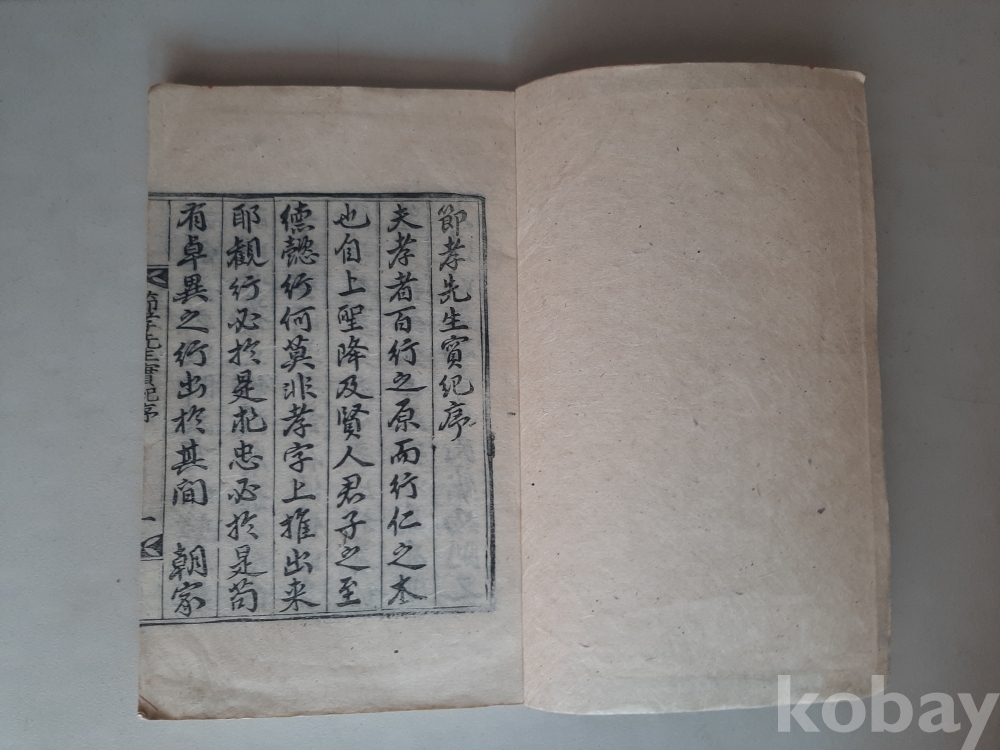 節孝先生實紀序
夫孝者百行之原而行仁之本
也自上聖降及賢人君子之至
德懿行何莫非孝字上推出来
耶觀行必於是求忠必於是苟
有卓異之行出於其间 朝家
節孝先生實紀序
一
kobay